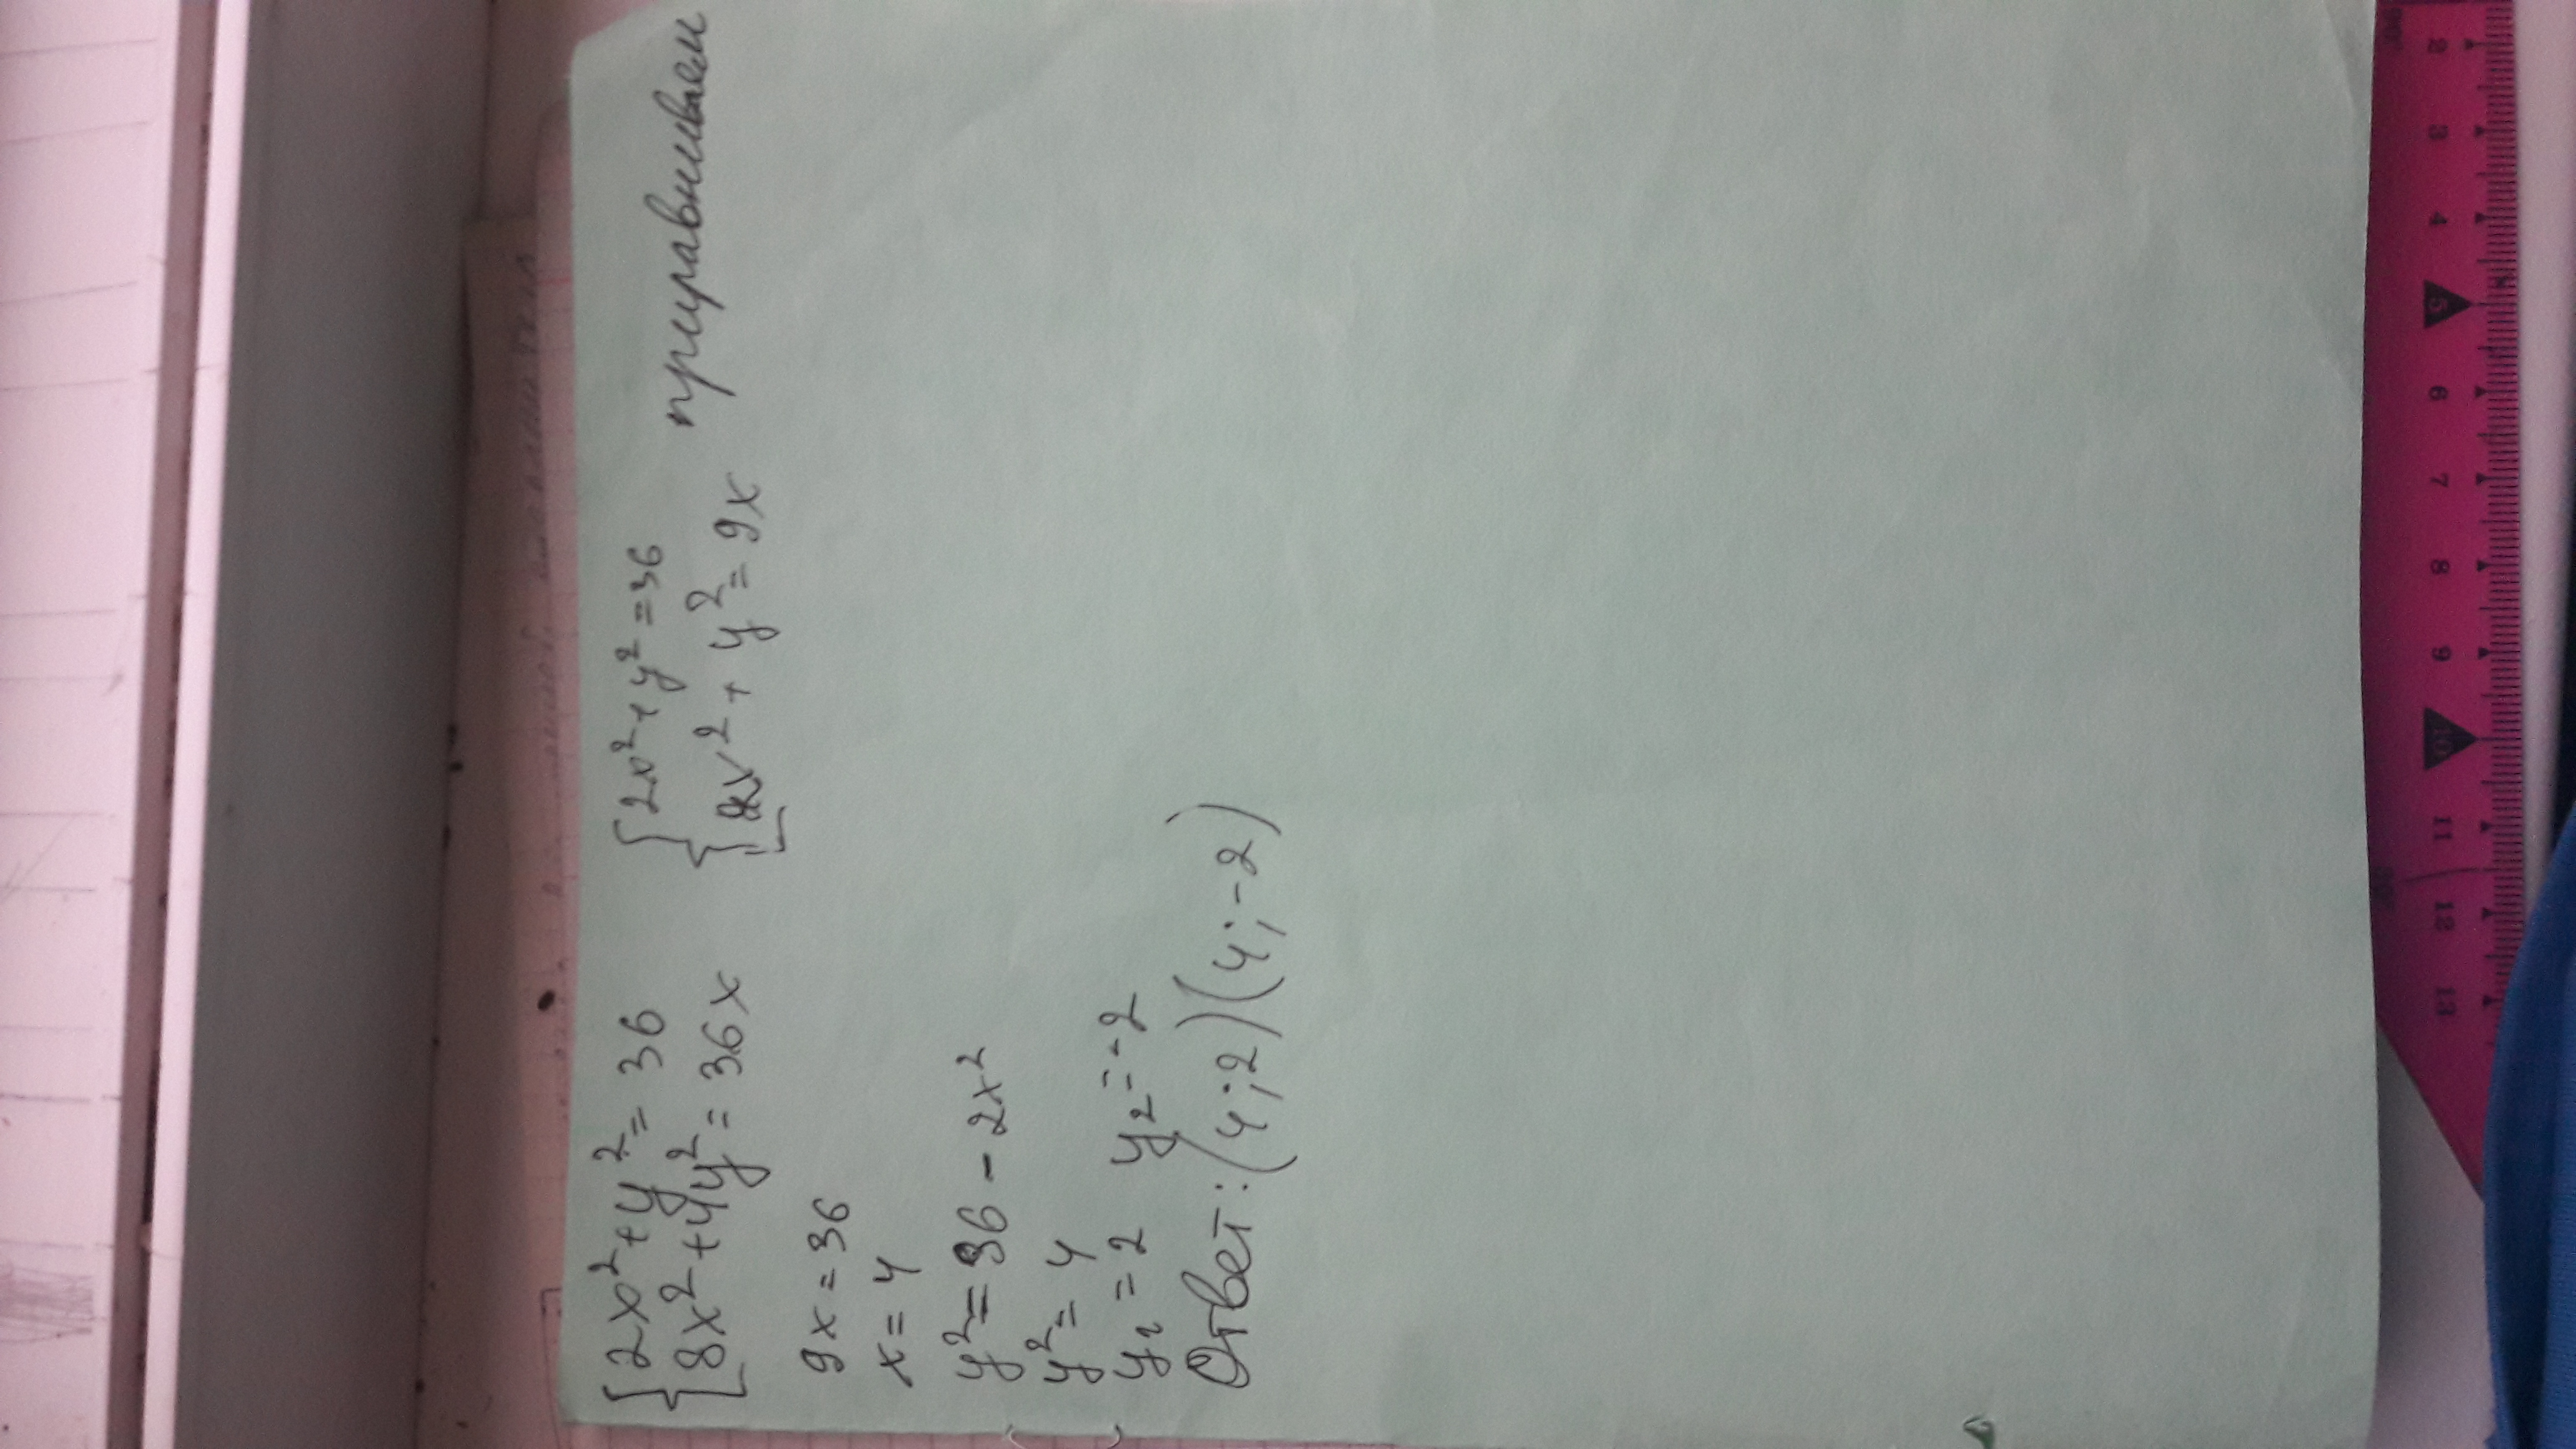 2x² + y² = 36
8x² + 4y² = 36x
2x² + y² = 36
2x² + y² = 9x приравниваем
9x = 36
x = 4
y² = 36 - 2x²
y² = 4
y₁ = 2 y₂ = -2
Ответ: (4; 2) (4; -2)
2 3 4 5 6 7 8 9 10 11 12 13